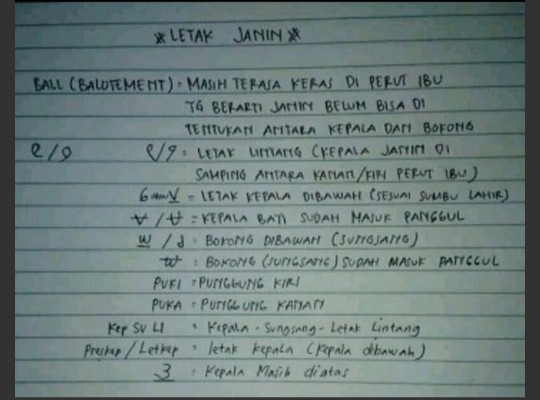 * LETAK JANIN *
BALL (BALOTEMENT) : MASIH TERASA KERAS DI PERUT IBU
YG BERARTI JANIN BELUM BISA DI
TENTUKAN ANTARA KEPALA DAN BOKONG
= LETAK LINTANG (KEPALA JANIN DI
SAMPING ANTARA KANAN/KIRI PERUT IBU)
= LETAK KEPALA DIBAWAH (SESUAI SUMBU LAHIR)
= KEPALA BAYI SUDAH MASUK PANGGUL
: BOKONG DIBAWAH (SUNGSANG)
: BOKONG (SUNGSANG) SUDAH MASUK PANGGUL
PUKI : PUNGGUNG KIRI
PUKA = PUNGGUNG KANAN
Kep SU LI = Kepala - Sungsang - Letak Lintang
Preskep / Letkep = letak kepala (Kepala dibawah)
3 : Kepala Masih diatas